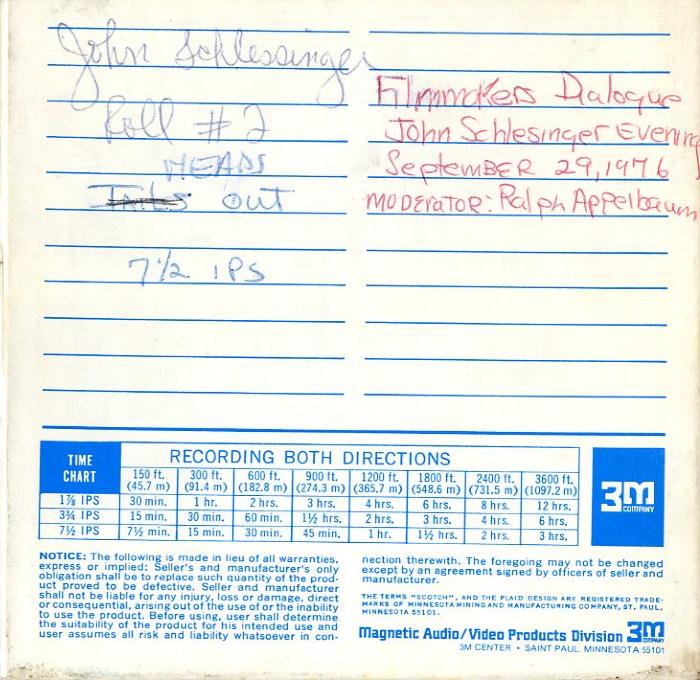 John Schlessinger
Roll # 2
HEADS
Tails out
7 1/2 IPS
Filmmakers Dialogue
John Schlesinger Evening
September 29, 1976
MODERATOR: Ralph Appelbaum
TIME CHART
RECORDING BOTH DIRECTIONS
150 ft. 300 ft. 600 ft. 900 ft. 1200 ft. 1800 ft. 2400 ft. 3600 ft.
(45.7 m) (91.4 m) (182.8 m) (274.3 m) (365.7 m) (548.6 m) (731.5 m) (1097.2 m)
1⅞ IPS 30 min. 1 hr. 2 hrs. 3 hrs. 4 hrs. 6 hrs. 8 hrs. 12 hrs.
3¾ IPS 15 min. 30 min. 60 min. 1½ hrs. 2 hrs. 3 hrs. 4 hrs. 6 hrs.
7½ IPS 7½ min. 15 min. 30 min. 45 min. 1 hr. 1½ hrs. 2 hrs. 3 hrs.
3M
COMPANY
NOTICE: The following is made in lieu of all warranties,
express or implied: Seller's and manufacturer's only
obligation shall be to replace such quantity of the prod-
uct proved to be defective. Seller and manufacturer
shall not be liable for any injury, loss or damage, direct
or consequential, arising out of the use of or the inability
to use the product. Before using, user shall determine
the suitability of the product for his intended use and
user assumes all risk and liability whatsoever in con-
nection therewith. The foregoing may not be changed
except by an agreement signed by officers of seller and
manufacturer.
THE TERMS "SCOTCH", AND THE PLAID DESIGN ARE REGISTERED TRADE-
MARKS OF MINNESOTA MINING AND MANUFACTURING COMPANY, ST. PAUL,
MINNESOTA 55101.
Magnetic Audio/Video Products Division 3M COMPANY
3M CENTER • SAINT PAUL, MINNESOTA 55101